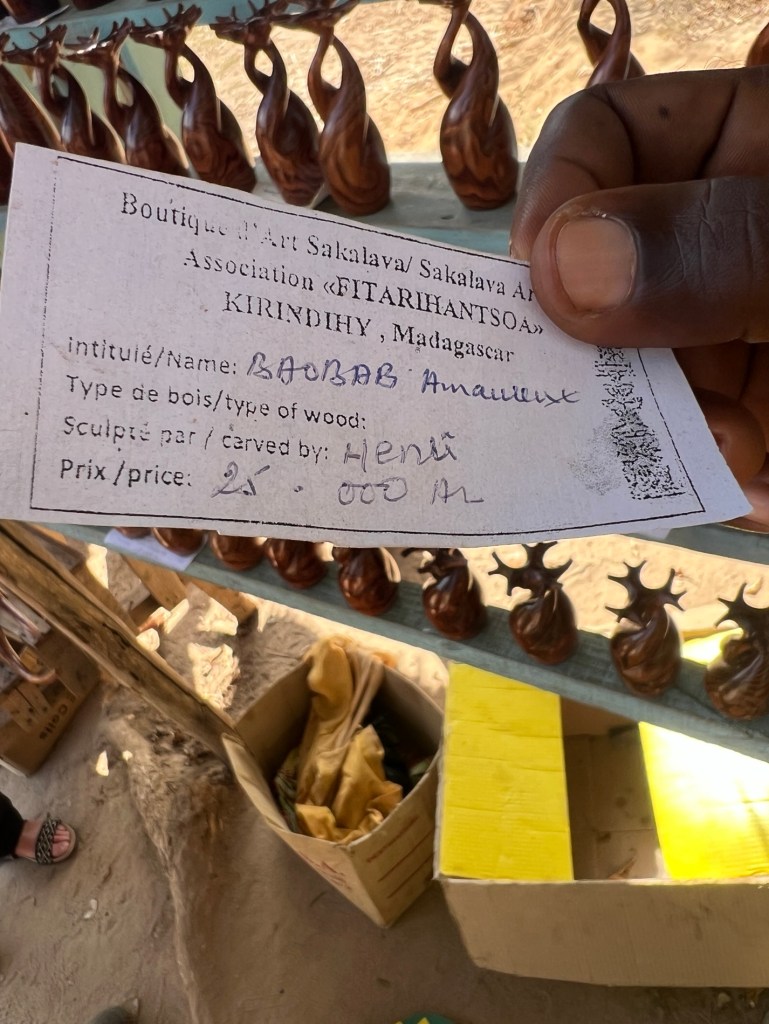 Boutique d'Art Sakalava/ Sakalava Ar
Association «FITARIHANTSOA»
KIRINDIHY , Madagascar
intitulé/Name: BAOBAB Amoureux
Type de bois/type of wood:
Sculpté par / carved by: Henri
Prix /price: 25.000 Ar